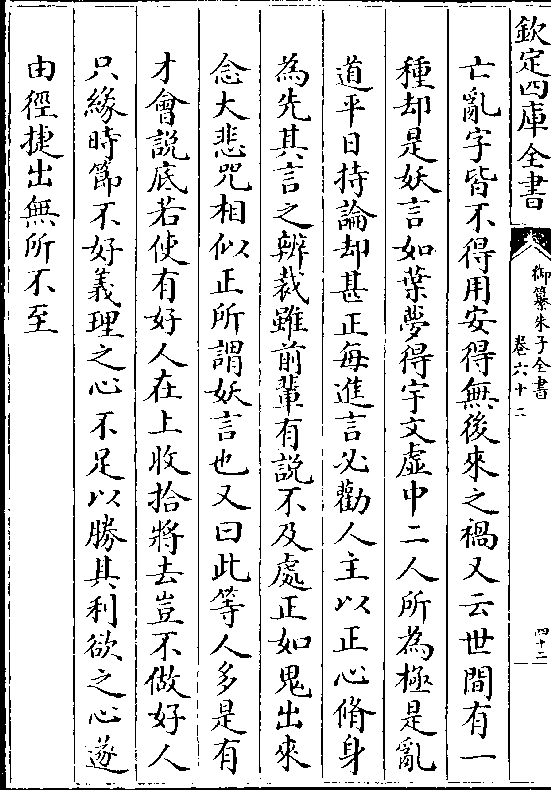 欽定四庫全書
御纂朱子全書
卷六十二
四十二
亡亂字皆不得用安得無後來之禍又云世間有一
種却是妖言如葉夢得宇文虛中二人所為極是亂
道平日持論却甚正每進言必勸人主以正心脩身
為先其言之辨裁雖前輩有說不及處正如鬼出來
念大悲咒相似正所謂妖言也又曰此等人多是有
才會說底若使有好人在上收拾將去豈不做好人
只緣時節不好義理之心不足以勝其利欲之心遂
由徑捷出無所不至